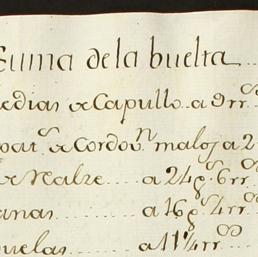 Suma de la buelta
edias de Capullo.. a 9 rr.s
pat.s de Cordov.n malos a 2
de realze.... a 24 p.s 6 rr.s
anas..... a 16 p.s 4 rr.s
uelas...... a 11 1/4 rr.s